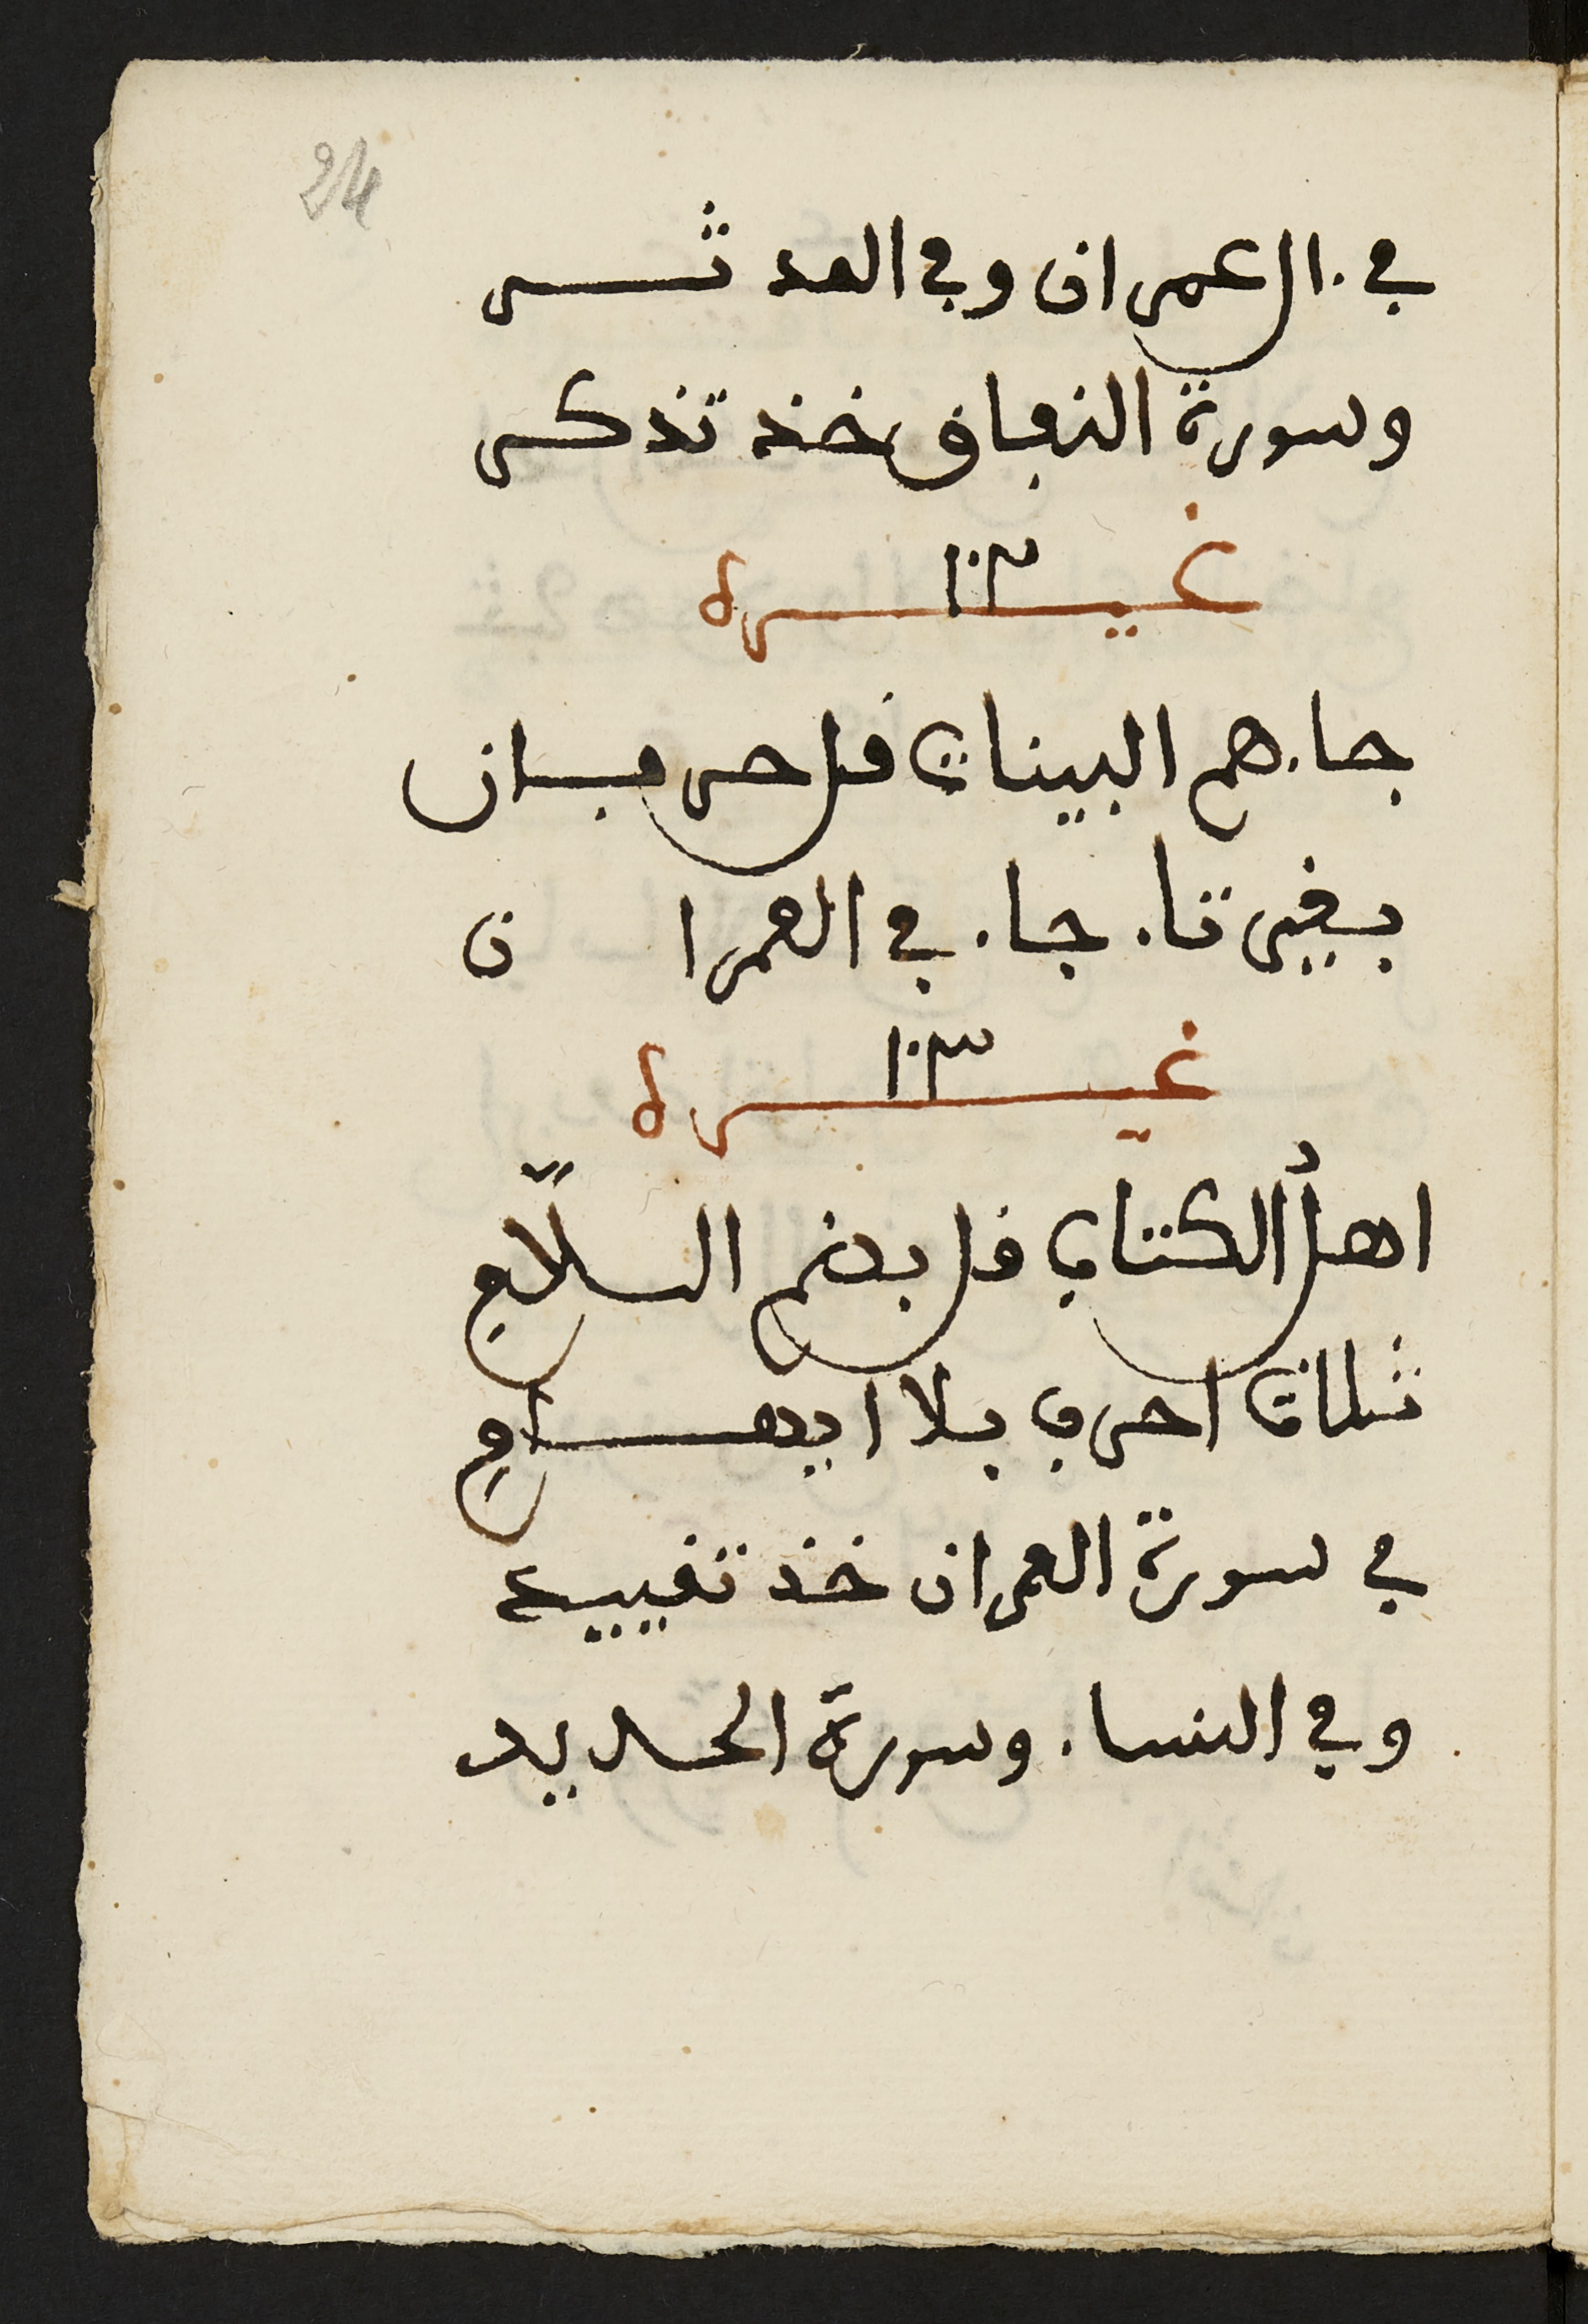 24
في ءال عمران وفي المدثر
وسورة النفاق خذ تذكر
غيره ٣٠١
جاءهم البينات فل حرفان
بغير تاء جاء في العمران
غيره ٣٠١
اهل الكتاب قل بدنم السلام
ثلاث احرف بلا ايهام
في سورة العمران خذ تفييد
وفي النساء وسورة الحديد